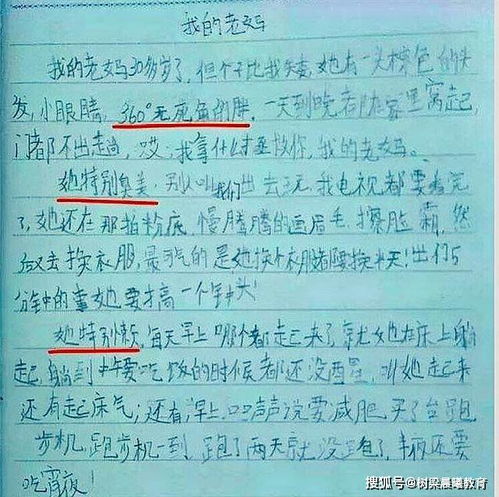 我的老妈
我的老妈30多岁了，但个子比我矮，她有一头棕色的头
发，小眼睛，360°无死角的胖，一天到晚都在家里窝起，
门都不出走尚，哎，我拿什么拯救你，我的老妈。
她特别臭美，别人叫我们出去玩，我电视都要看完
了，她还在那拍粉底，慢腾腾的画眉毛，擦脸霜，然
后又去换衣服，最气的是她换个衣服都要换半天！出门5
分钟的事她要才高一个钟头！
她特别懒，每天早上哪个都起来了，就她在床上躺
起，躺到中午要吃饭的时候都还没醒，叫她起来
还有起床气，还有早上口口声声说要减肥，买了台跑
步机，跑步机一到，跑了两天就没跑了，半夜还要
吃宵夜！
搜狐号@树梁晨曦教育